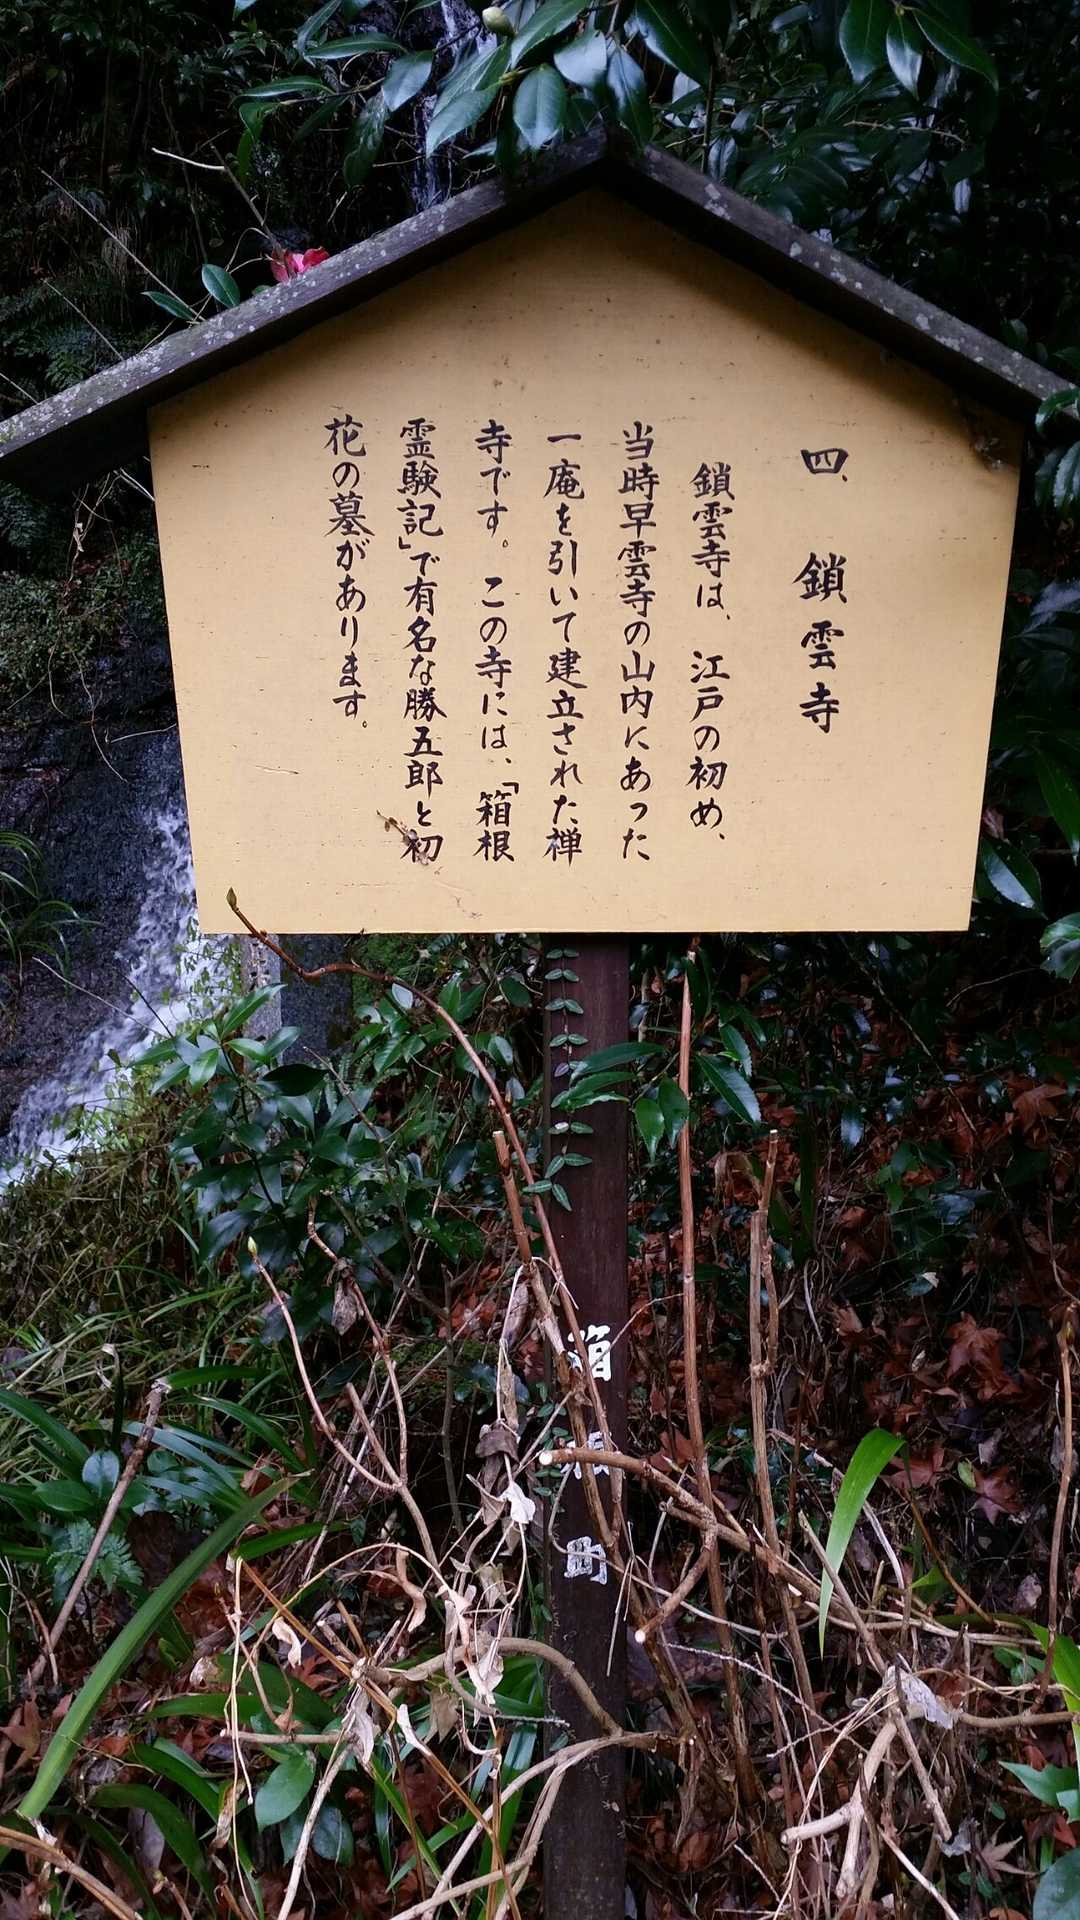 四、鎖雲寺
鎖雲寺は、江戸の初め、
当時早雲寺の山内にあった
一庵を引いて建立された禅
寺です。この寺には、「箱根
霊験記」で有名な勝五郎と初
花の墓があります。
箱根町